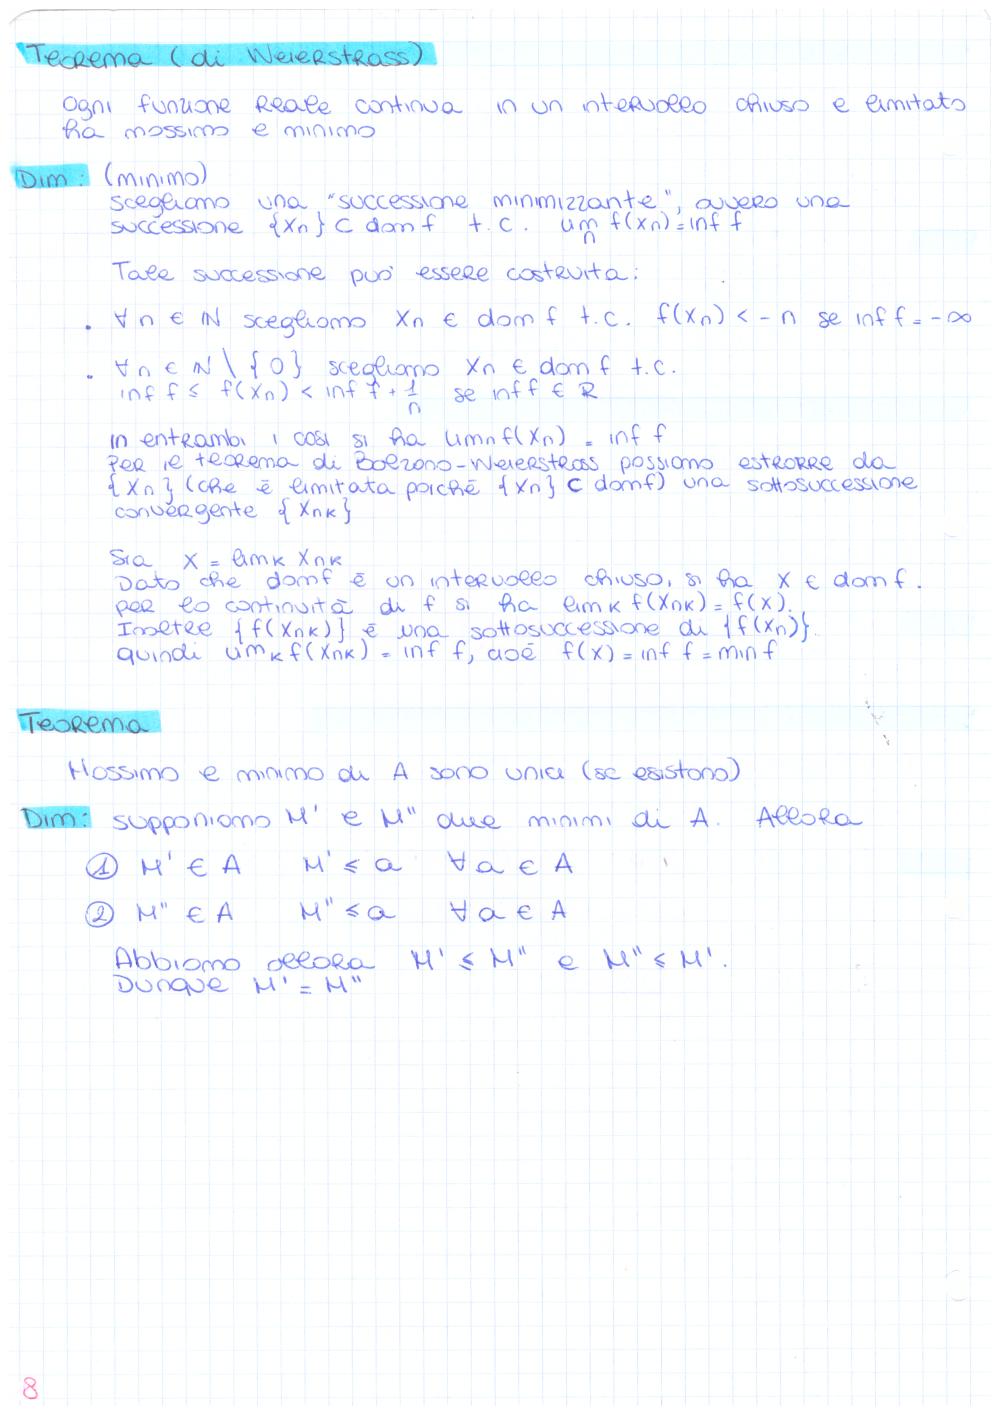 Teorema (di Weierstrass)
Ogni funzione reale continua in un intervallo chiuso e limitato
ha massimo e minimo
Dim: (minimo)
scegliamo una "successione minimizzante", ovvero una
successione {xn} ⊂ dom f t.c. lim n f(xn) = inf f
Tale successione può essere costruita:
• ∀ n ∈ ℕ scegliamo xn ∈ dom f t.c. f(xn) < -n se inf f = -∞
• ∀ n ∈ ℕ \ {0} scegliamo xn ∈ dom f t.c.
inf f ≤ f(xn) < inf f + 1/n se inf f ∈ R
in entrambi i casi si ha lim n f(xn) = inf f
Per il teorema di Bolzano-Weierstrass possiamo estrarre da
{xn} (che è limitata poiché {xn} ⊂ domf) una sottosuccessione
convergente {xnk}
Sia x = lim k xnk
Dato che domf è un intervallo chiuso, si ha x ∈ domf.
per la continuità di f si ha lim k f(xnk) = f(x).
Inoltre {f(xnk)} è una sottosuccessione di {f(xn)}.
quindi lim k f(xnk) = inf f, cioè f(x) = inf f = min f
Teorema
Massimo e minimo di A sono unici (se esistono)
Dim: supponiamo M' e M" due minimi di A. Allora
① M' ∈ A M' ≤ a ∀ a ∈ A
② M" ∈ A M" ≤ a ∀ a ∈ A
Abbiamo allora M' ≤ M" e M" ≤ M'.
Dunque M' = M"
8